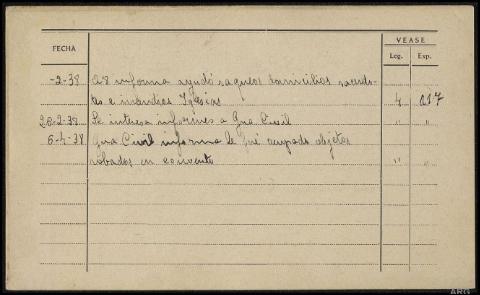 FECHA
VEASE
Leg. Exp.
-2-38 A8 informa ayudó saqueos domicilios sacerdo-
tes e incendios Iglesias 4 017
26-2-38 Se interesa informes a Gua Civil " "
6-4-38 Gua Civil informa le fué ocupado objetos
robados en convento " "
ARG